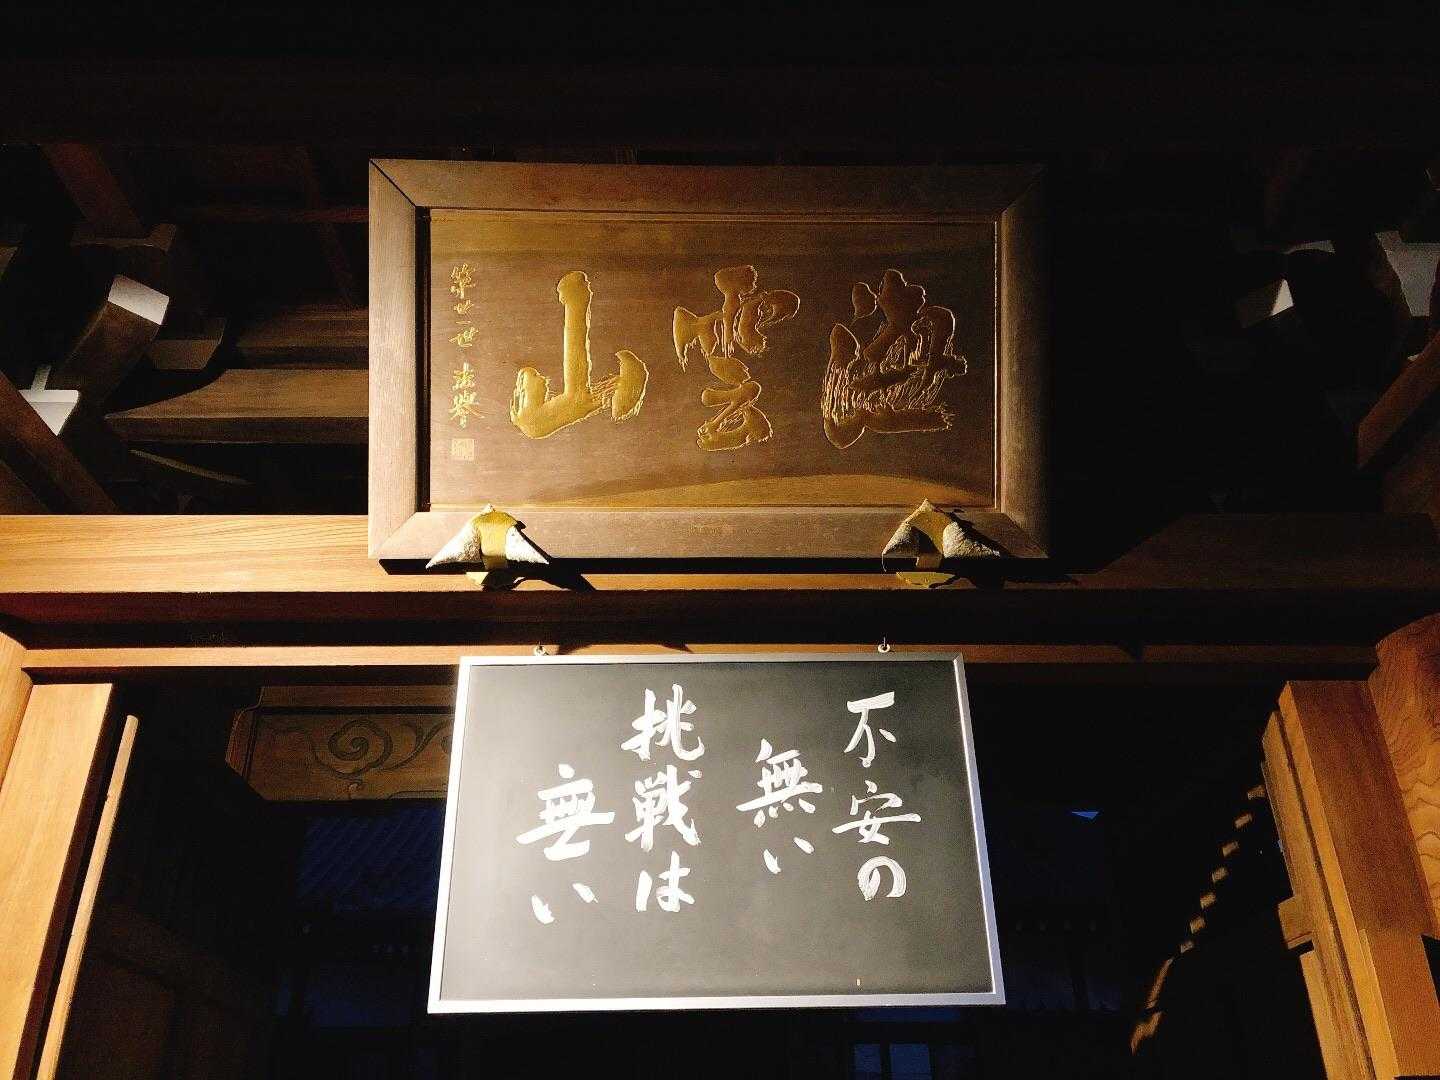 海雲山
第廿一世
不安の
無い
挑戦は
無い